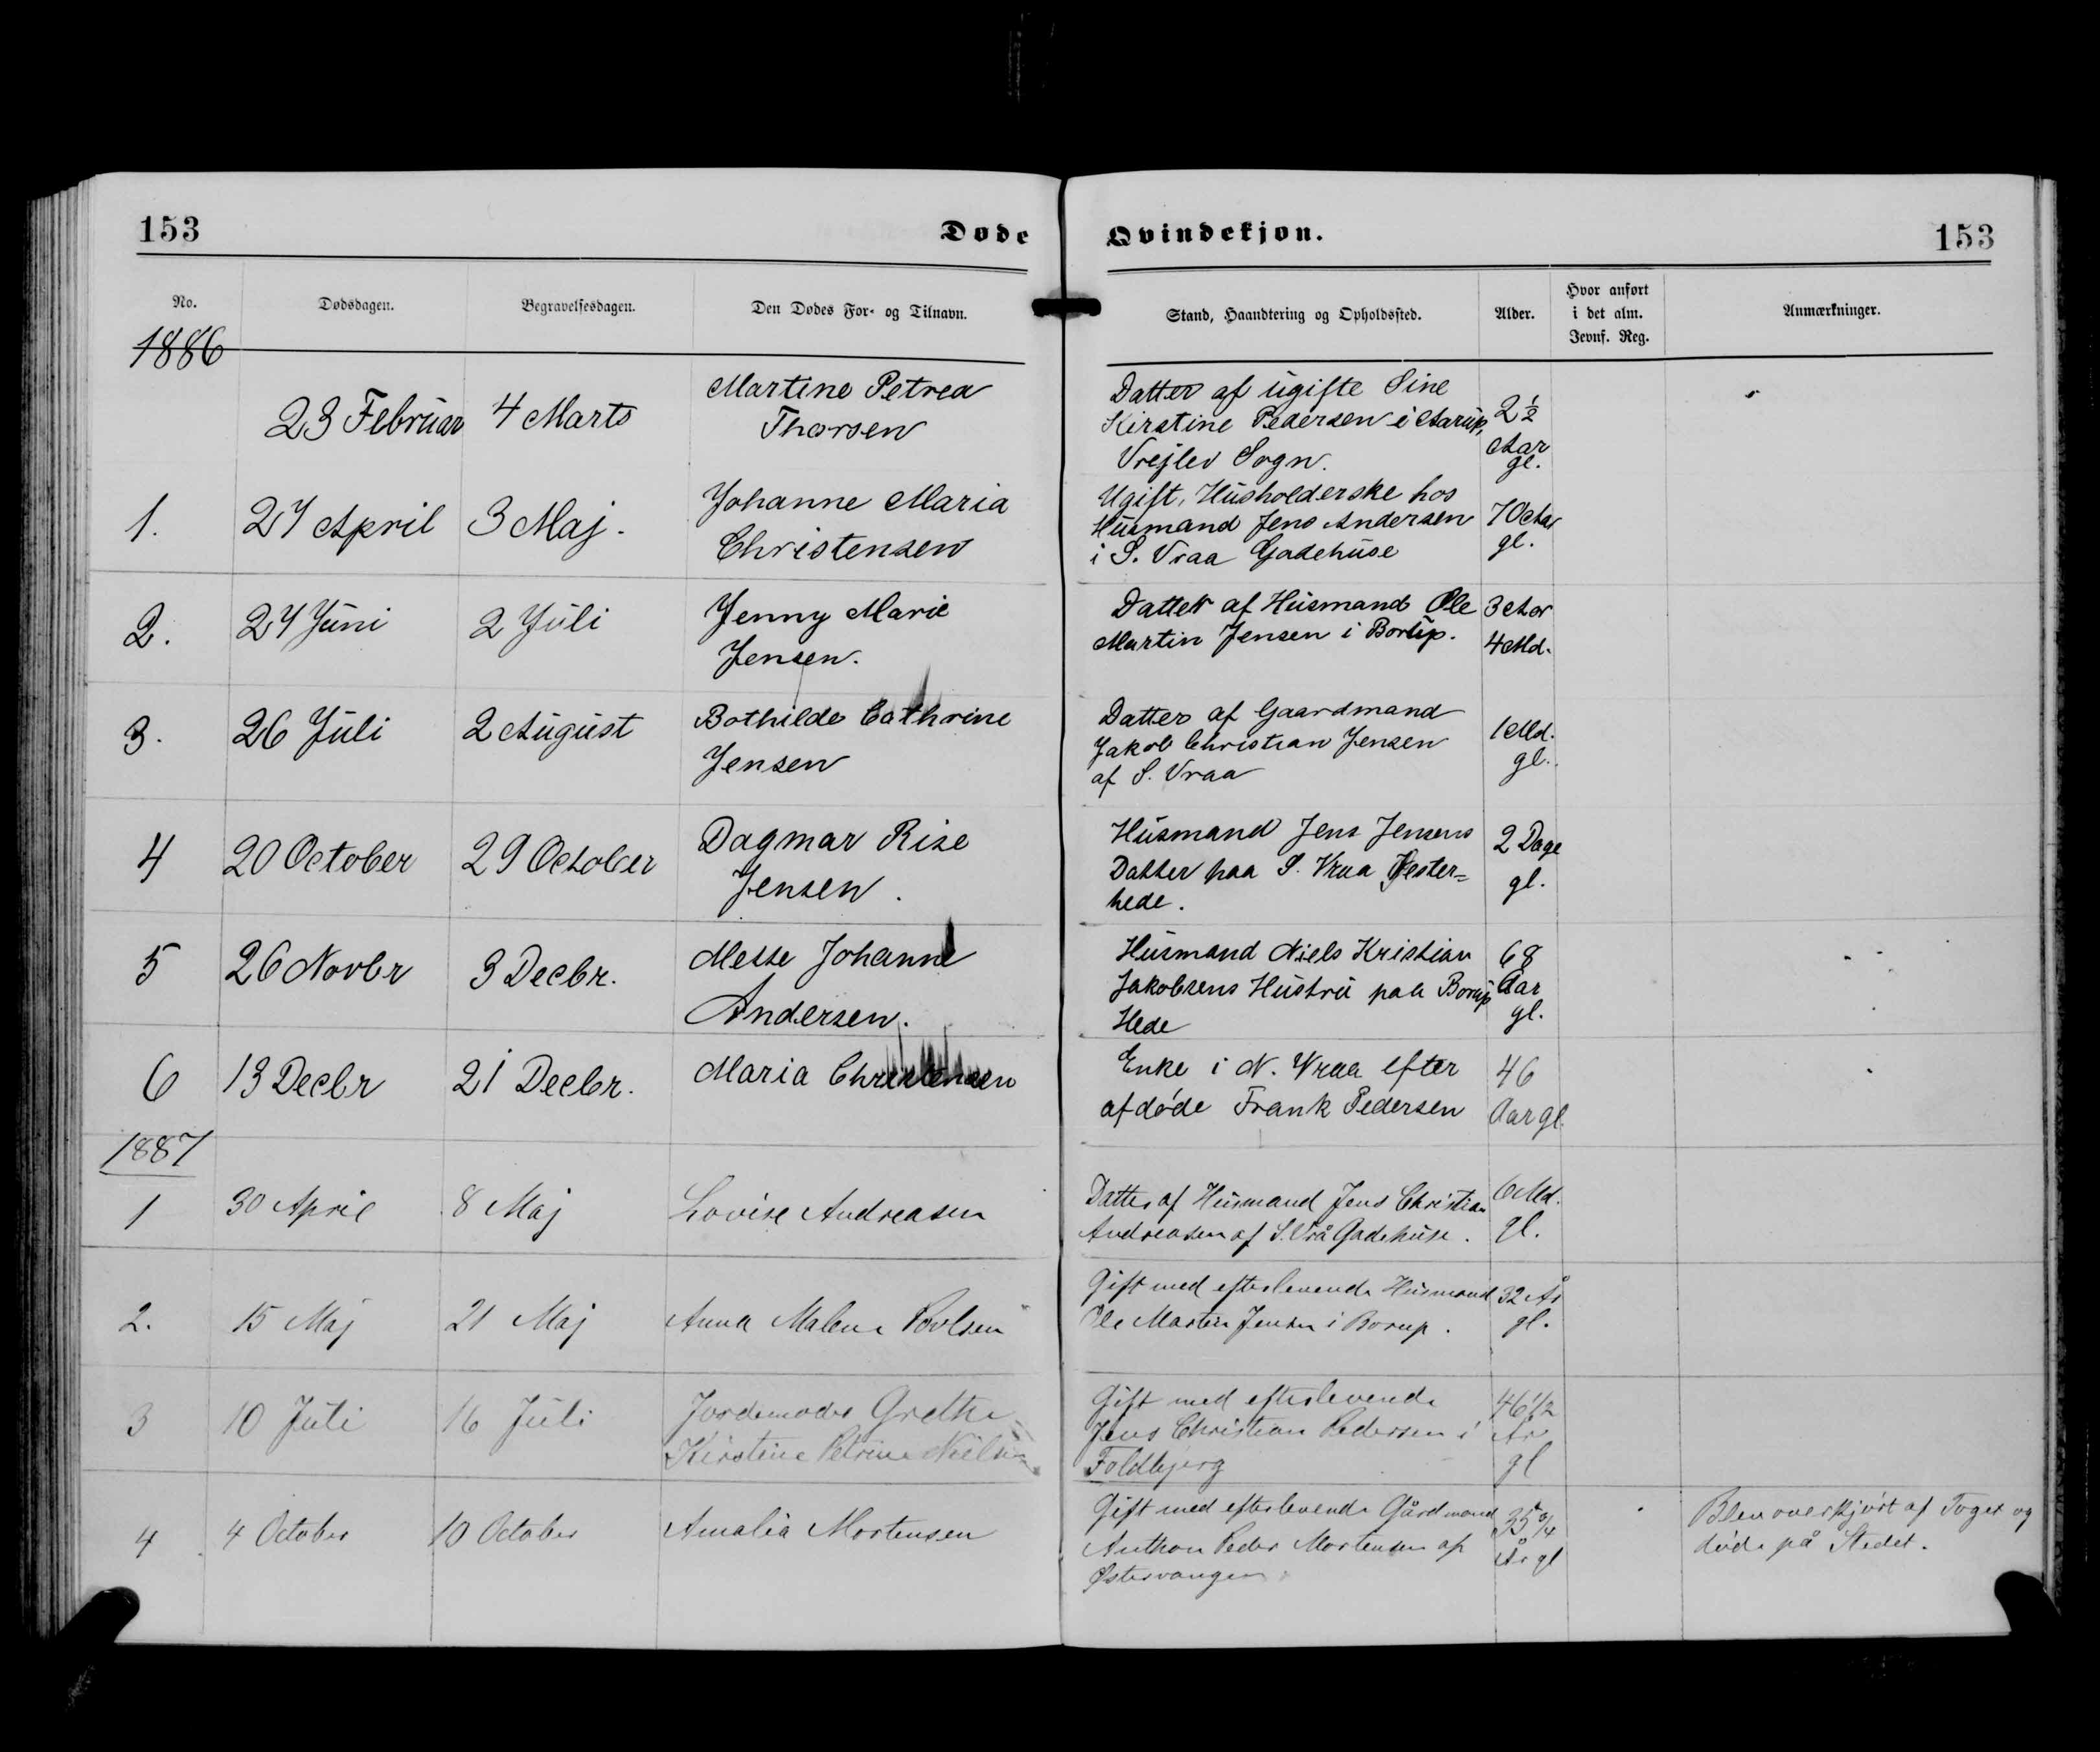 153
Døde
Qvindekjøn.
153
No.
Dødsdagen.
Begravelsesdagen.
Den Dødes For- og Tilnavn.
Stand, Haandtering og Opholdssted.
Alder.
Hvor anført
i det alm.
Jevnf. Reg.
Anmærkninger.
1886
23 Februar
4 Marts
Martine Petrea
Thorsen
Datter af ugifte Sine
Kirstine Pedersen i Aarup,
Vrejlev Sogn.
2 1/2
Aar
gl.
1.
27 April
3 Maj.
Johanne Maria
Christensen
Ugift, Husholderske hos
Husmand Jens Andersen
i S. Vraa Gadehuse
70 Aar
gl.
2.
27 Juni
2 Juli
Jenny Marie
Jensen.
Datter af Husmand Ole
Martin Jensen i Borup.
3 Aar
4 Md.
3.
26 Juli
2 August
Bothilde Cathrine
Jensen
Datter af Gaardmand
Jakob Christian Jensen
af S. Vraa
1 Md.
gl.
4
20 October
29 October
Dagmar Rise
Jensen.
Husmand Jens Jensens
Datter paa S. Vraa Vester=
hede.
2 Dage
gl.
5
26 Novbr
3 Decbr.
Mette Johanne
Andersen.
Husmand Niels Kristian
Jakobsens Hustru paa Borup
Hede
68
Aar
gl.
6
13 Decbr
21 Decbr.
Maria Christensen
Enke i N. Vraa efter
afdøde Frank Pedersen
46
Aar gl.
1887
1
30 April
8 Maj
Lovise Andreasen
Datter af Husmand Jens Christian
Andreasen af S. Vrå Gadehuse.
6 Md.
gl.
2.
15 Maj
21 Maj
Anna Malene Povlsen
Gift med efterlevende Husmand
Ole Martin Jensen i Borup.
32 År
gl.
3
10 Juli
16 Juli
Jordemoder Grethe
Kirstine Petrine Nielsen
Gift med efterlevende
Jens Christian Pedersen i
Foldbjerg
46 1/2
År
gl
4
4 October
10 October
Amalia Mortensen
Gift med efterlevende Gårdmand
Anthon Peder Mortensen af
Østervangen
35 3/4
År gl
Blev overkjørt af Toget og
døde på Stedet.